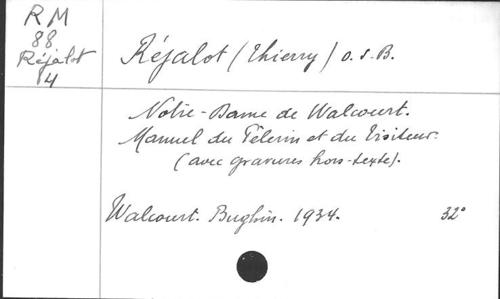 RM
88
Réjalot
4
Réjalot (Thierry) O.S.B.
Notre-Dame de Walcourt.
Manuel du Pèlerin et du Visiteur.
(avec gravures hors-texte).
Walcourt. Bughin. 1934. 32°